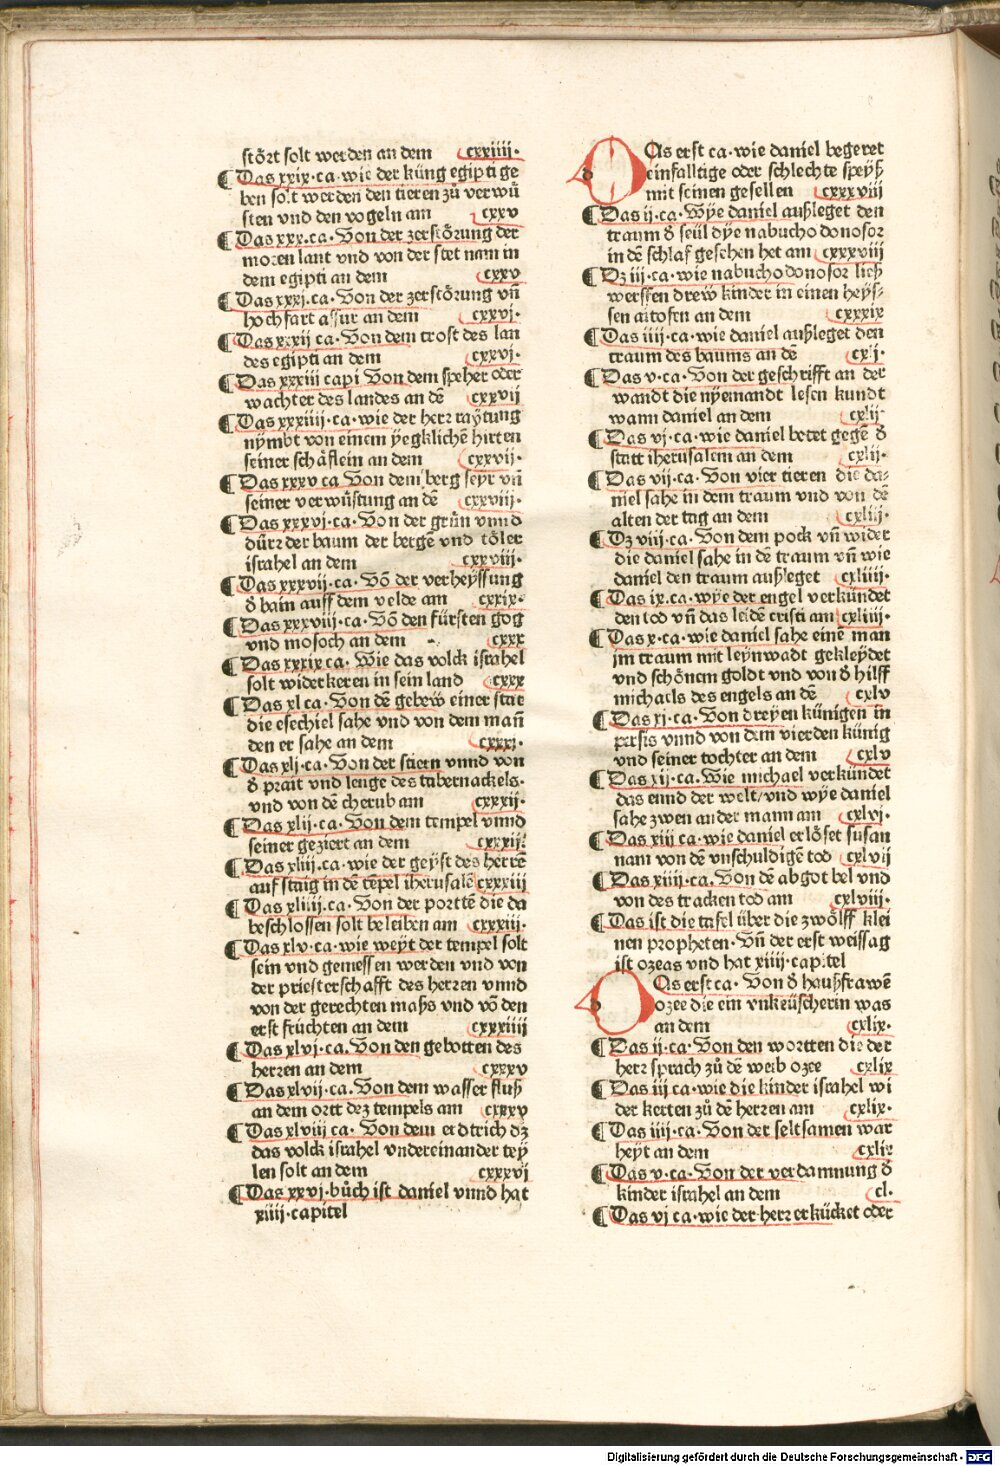 stört solt werden an dem cxxiiii·
¶ Das xxix·ca·wie der küng egipti ge
ben solt werden den tieren zů verwů
sten vnd den vogeln am cxxv
¶ Das xxx.ca·Von der zerstörung der
moren lant vnd von der stet nam in
dem egipti an dem cxxv
¶ Das xxxj.ca·Von der zerstörung vn̄
hochfart assur an dem cxxvj·
¶ Das xxxij ca·Von dem trost des lan
des egipti an dem cxxvj·
¶ Das xxxiii capi Von dem speher oder
wachter des landes an dē cxxvij
¶ Das xxxiiij·ca·wie der herr raÿtung
nÿmbt von einem ÿegklichē hirten
seiner schäflein an dem cxxvij·
¶ Das xxxv ca Von dem berg seyr vn̄
seiner verwüstung an dē cxxviij·
¶ Das xxxvj·ca·Von der grün vnnd
dürr der baum der bergē vnd töler
israhel an dem cxxviij·
¶ Das xxxvij·ca·Vō der verheÿssung
d̄ bain auff dem velde am cxxix·
¶ Das xxxviij·ca·Vō den fürsten gog
vnd mosoch an dem cxxx
¶ Das xxxix ca·Wie das volck israhel
solt widerkeren in sein land cxxx
¶ Das xl ca·Von dē gebeẅ einer stat
die esechiel sahe vnd von dem man̄
den er sahe an dem cxxxj·
¶ Das xlj·ca·Von der stiern vnnd von
d̄ prait vnd lenge des tabernackels·
vnd von dē cherub am cxxxij·
¶ Das xlij·ca·Von dem tempel vnnd
seiner geziert an dem cxxxij·
¶ Das xliij·ca·wie der geÿst des herrē
auf staig in dē tēpel iherusalē cxxxiii
¶ Das xliiij.ca·Von der porttē die da
beschlossen solt beleiben am cxxxiii·
¶ Das xlv·ca·wie weÿt der tempel solt
sein vnd gemessen werden vnd von
der priesterschafft des herren vnnd
von der gerechten mass vnd vō den
erst früchten an dem cxxxiiii
¶ Das xlvj·ca.Von den gebotten des
herren an dem cxxxv
¶ Das xlvij·ca.Von dem wasser fluß
an dem ortt dez tempels am cxxxv
¶ Das xlviii ca·Von dem erdtrich dz
das volck israhel vndereinander teÿ
len solt an dem cxxxvj
¶ Das xxvj·bůch ist daniel vnnd hat
xiiij·capitel
Das erst ca·wie daniel begeret
einfalltige oder schlechte speÿß
mit seinen gesellen cxxxviii
¶ Das ij·ca·Wÿe daniel außleget den
traum d̄ seül dÿe nabuchodonosor
in dē schlaf gesehen het am cxxxviii
¶ Dz iii·ca·wie nabuchodonosor ließ
werffen dreẅ kinder in einen heÿs⸗
sen aitofen an dem cxxxix
¶ Das iiij·ca·wie daniel außleget den
traum des baums an dē cxl·
¶ Das v·ca·Von der geschrifft an der
wandt die nÿemandt lesen kundt
wann daniel an dem cxlij·
¶ Das vj·ca·wie daniel betet gegē d̄
statt iherusalem an dem cxlij·
¶ Das vij·ca·Von vier tieren die da⸗
niel sahe in dem traum vnd von dē
alten der tag an dem cxliij·
¶ Dz viij·ca·Von dem pock vn̄ wider
die daniel sahe in dē traum vn̄ wie
daniel den traum außleget cxliiij·
¶ Das ix.ca·wÿe der engel verkündet
den tod vn̄ das leidē cristi am cxliiij·
¶ Das x·ca·wie daniel sahe einē man
im traum mit leÿnwadt gekleÿdet
vnd schönem goldt vnd von d̄ hilff
michaels des engels an dē cxlv
¶ Das xj·ca·Von dreÿen künigen in
persis vnnd von dem vierden künig
vnd seiner tochter an dem cxlv
¶ Das xij·ca·Wie michael verkündet
das ennd der welt/vnd wÿe daniel
sahe zwen ander mann am cxlvj·
¶ Das xiij ca·wie daniel erlöset susan
nam von dē vnschuldigē tod cxlvij
¶ Das xiiij·ca.Von dē abgot bel vnd
von des tracken tod am cxlviij·
¶ Das ist die tafel über die zwölff klei
nen propheten·Vn̄ der erst weissag
ist ozeas vnd hat xiiij·capitel
Das erst ca·Von d̄ haußfrawē
ozee die ein vnkeüscherin was
an dem cxlix·
¶ Das ij·ca·Von den wortten die der
herr sprach zů dē weib ozee cxlix
¶ Das iij ca·wie die kinder israhel wi
der kerten zů dē herren am cxlix·
¶ Das iiij·ca·Von der seltsamen war
heÿt an dem cxlix
¶ Das v·ca·Von der verdamnung d̄
kinder israhel an dem cl.
¶ Das vj ca·wie der herr erkücket oder
Digitalisierung gefördert durch die Deutsche Forschungsgemeinschaft - DFG